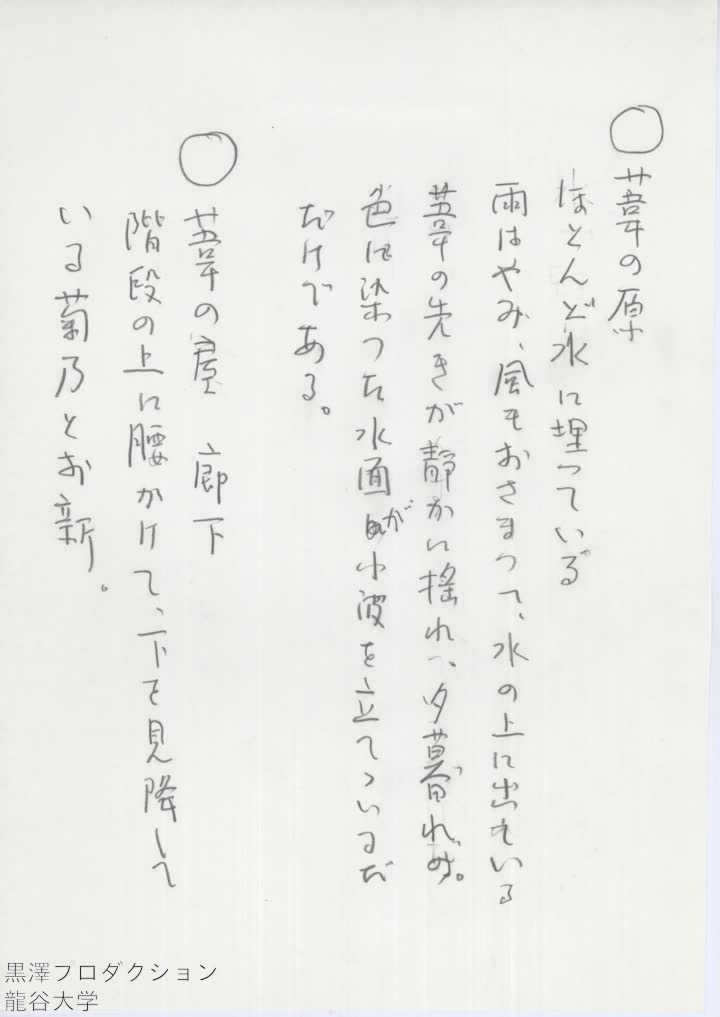 ○ 葦の原
ほとんど水に埋っている
雨はやみ、風もおさまって、水の上に出ている
葦の先きが静かに揺れ、夕暮れ
色に染った水面が小波を立てているだ
だけである。
○ 葦の屋 廊下
階段の上に腰かけて、下を見降して
いる菊乃とお新。
黒澤プロダクション
龍谷大学